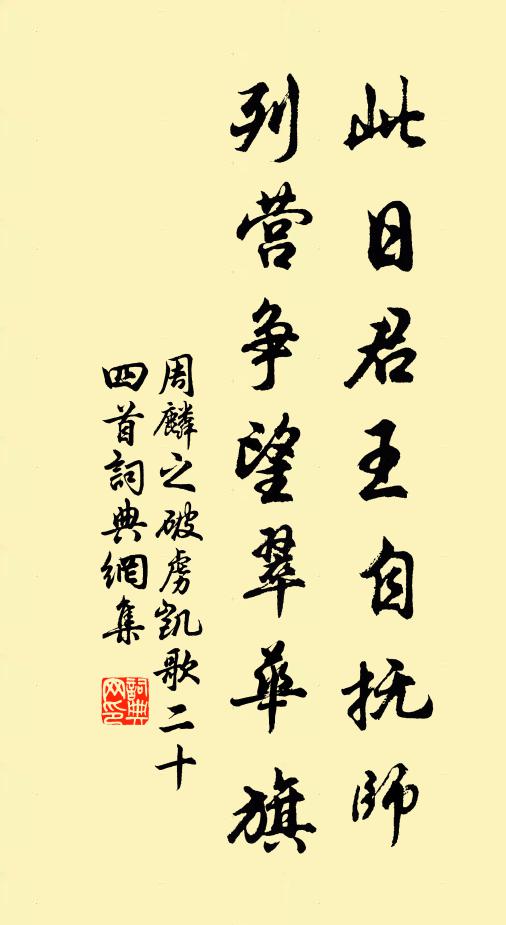 此日君王自抚師
列营争望翠華旗
周麟之破虏凯歌二十
四首詞典網集
詞典
网印